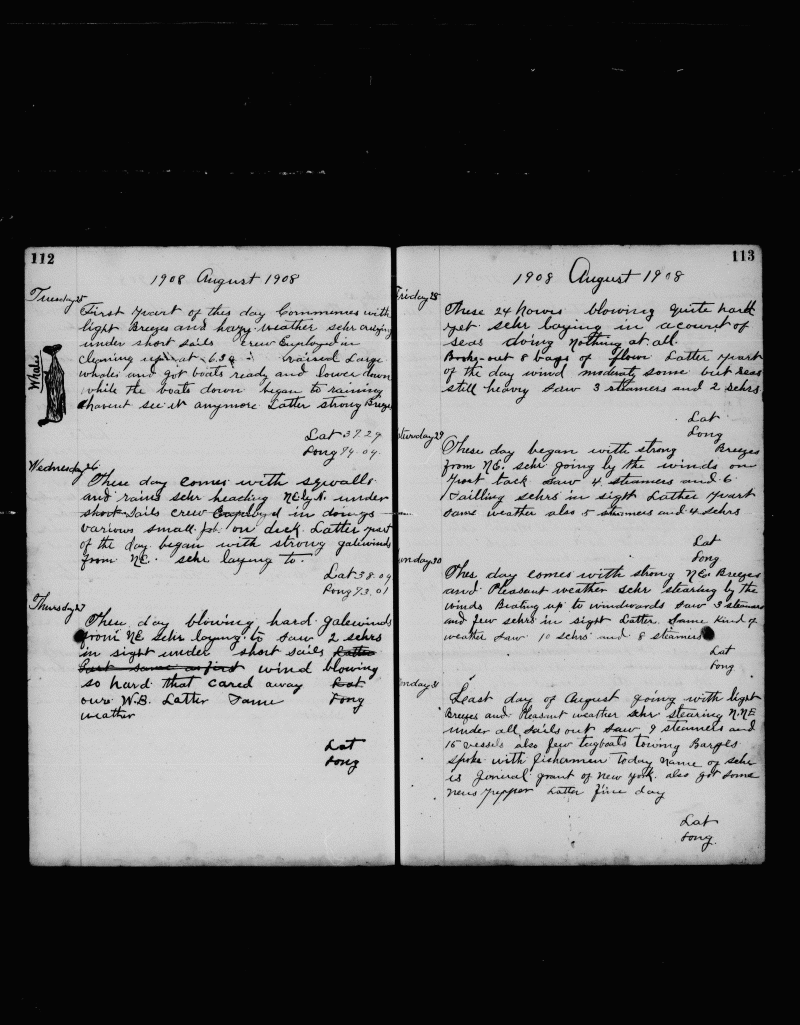 112
1908 August 1908
Tuesday 25
First part of this day Commences with
light Breezes and hazy weather schr
under short sails crew Employed in
clening up at 6.30 raised Large
whales and got boats ready and lower down
while the boats down began to raining
havent see it anymore Latter strong Breeze
Whales
Lat 37.29
Long 74.04
Wednesday 26
These day comes with sqwalls
and rains schr heading NE by N. under
short sails crew Employed in doings
various small job on deck. Latter part
of the day began with strong galewinds
from NE. schr laying to.
Lat 38.09
Long 73.01
Thursday 27
These day blowing hard galewinds
from NE schr laying to saw 2 schrs
in sight under short sails Latter
Part same as first wind blowing
so hard that cared away Lat
oure W.B. Latter Same Long
weather
Lat
Long
113
1908 August 1908
Friday 28
These 24 hours blowing quite hard
yet schr laying in acount of
seas doing nothing at all.
Broke out 8 bags of flour Latter part
of the day wind moderate some but seas
still heavy saw 3 steamers and 2 schrs
Lat
Long
aturday 29
These day began with strong Breezes
from NE. schr going by the winds on
Port tack saw 4 steamers and 6
sailling schrs in sight Lather part
same weather also 5 steamers and 4 schrs
Lat
Long
unday 30
Thes day comes with strong NE. Breezes
and Pleasant weather schr stearing by the
winds Beating up to windwards saw 3 steamers
and few schrs in sight Latter Same kind of
weather saw 10 schrs and 8 steamers
Lat
Long
onday 31
Least day of August going with light
Breezes and Pleasant weather schr stearing N.NE
under all sails out saw 9 steamers and
15 vessels also few tugboats towing Barges
spoke with fisherman today name of schr
is General grant of New York. also got some
news Latter fine day
Lat
Long.